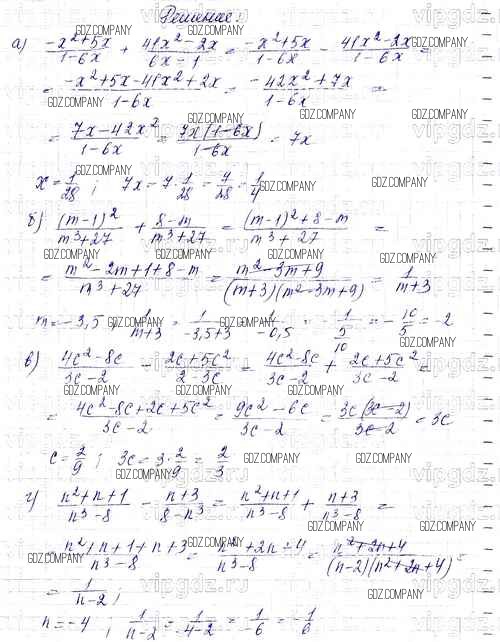 Решение:
а) (-x²+5x)/(1-6x) + (41x²-2x)/(6x-1) = (-x²+5x)/(1-6x) - (41x²-2x)/(1-6x) =
= (-x²+5x-41x²+2x)/(1-6x) = (-42x²+7x)/(1-6x) =
= (7x-42x²)/(1-6x) = (7x(1-6x))/(1-6x) = 7x
x = 1/28 ; 7x = 7·1/28 = 7/28 = 1/4
б) (m-1)²/(m³+27) + (8-m)/(m³+27) = ((m-1)²+8-m)/(m³+27) =
= (m²-2m+1+8-m)/(m³+27) = (m²-3m+9)/((m+3)(m²-3m+9)) = 1/(m+3)
m = -3,5 1/(m+3) = 1/(-3,5+3) = 1/(-0,5) = -1/(5/10) = -10/5 = -2
в) (4c²-8c)/(3c-2) - (2c+5c²)/(2-3c) = (4c²-8c)/(3c-2) + (2c+5c²)/(3c-2) =
= (4c²-8c+2c+5c²)/(3c-2) = (9c²-6c)/(3c-2) = (3c(3c-2))/(3c-2) = 3c
c = 2/9 ; 3c = 3·2/9 = 2/3
г) (n²+n+1)/(n³-8) - (n+3)/(8-n³) = (n²+n+1)/(n³-8) + (n+3)/(n³-8) =
= (n²+n+1+n+3)/(n³-8) = (n²+2n+4)/(n³-8) = (n²+2n+4)/((n-2)(n²+2n+4)) =
= 1/(n-2) ;
n = -4 ; 1/(n-2) = 1/(-4-2) = 1/(-6) = -1/6
GDZ.COMPANY
vipgdz.ru